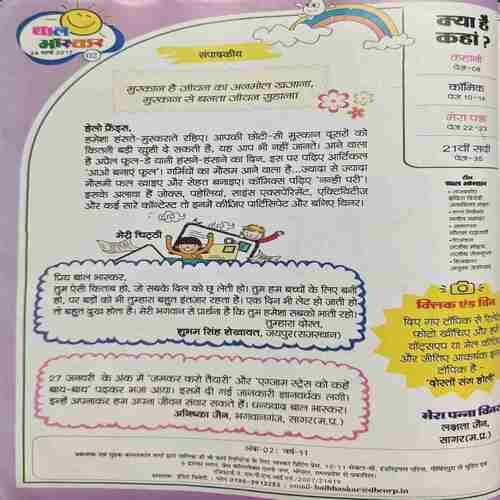 बाल
भास्कर
02
संपादकीय
मुस्कान है जीवन का अनमोल खजाना,
मुस्कान से बनता जीवन सुहाना।
हेलो फ्रेंड्स,
हमेशा हंसते-मुस्कराते रहिए। आपकी छोटी-सी मुस्कान दूसरों को
कितनी बड़ी खुशी दे सकती है, यह आप भी नहीं जानते। आने वाला
है अप्रैल फूल-डे यानी हंसने-हंसाने का दिन, इस पर पढ़िए आर्टिकल
'आओ बनाएं फूल'। गर्मियों का मौसम आने वाला है...ज्यादा से ज्यादा
मौसमी फल खाइए और सेहत बनाइए। कॉमिक्स पढ़िए 'नन्ही परी'।
इसके अलावा हैं जोक्स, पहेलियां, साइंस एक्सपेरिमेंट, एक्टिविटीज
और कई सारे कॉन्टेस्ट तो इनमें कीजिए पार्टिसिपेट और बनिए विनर।
मेरी चिट्ठी
प्रिय बाल भास्कर,
तुम ऐसी किताब हो, जो सबके दिल को छू लेती हो। तुम हम बच्चों के लिए बनी
हो, पर बड़ों को भी तुम्हारा बहुत इंतजार रहता है। एक दिन भी लेट हो जाती हो
तो बहुत दुख होता है। मेरी भगवान से प्रार्थना है कि तुम हमेशा सबको भाती रहो।
तुम्हारा दोस्त,
शुभम सिंह शेखावत, जयपुर(राजस्थान)
27 जनवरी के अंक में 'जमकर करो तैयारी' और 'एग्जाम स्ट्रेस को कहें
बाय-बाय' पढ़कर मजा आया। इसमें दी गई जानकारी ज्ञानवर्धक लगी।
इन्हें अपनाकर हम अपना जीवन संवार सकते हैं। धन्यवाद बाल भास्कर।
अनिष्का जैन, भगवानगंज, सागर(म.प्र.)
अंक-02: वर्ष-11
क्या है
कहां?
कहानी
पेज-08
कॉमिक
पेज 10-14
मेरा पन्ना
पेज 22-23
21वीं सदी
पेज-35
टीम
बाल भास्कर
क्लिक एंड विन
दिए गए टॉपिक से रिलेटेड
फोटो खींचिए और हमें
वॉट्सएप या मेल कीजिए
और जीतिए आकर्षक इनाम
टॉपिक है -
'दोस्तों संग होली'
मेरा पन्ना विनर
लक्षता जैन,
सागर(म.प्र.)